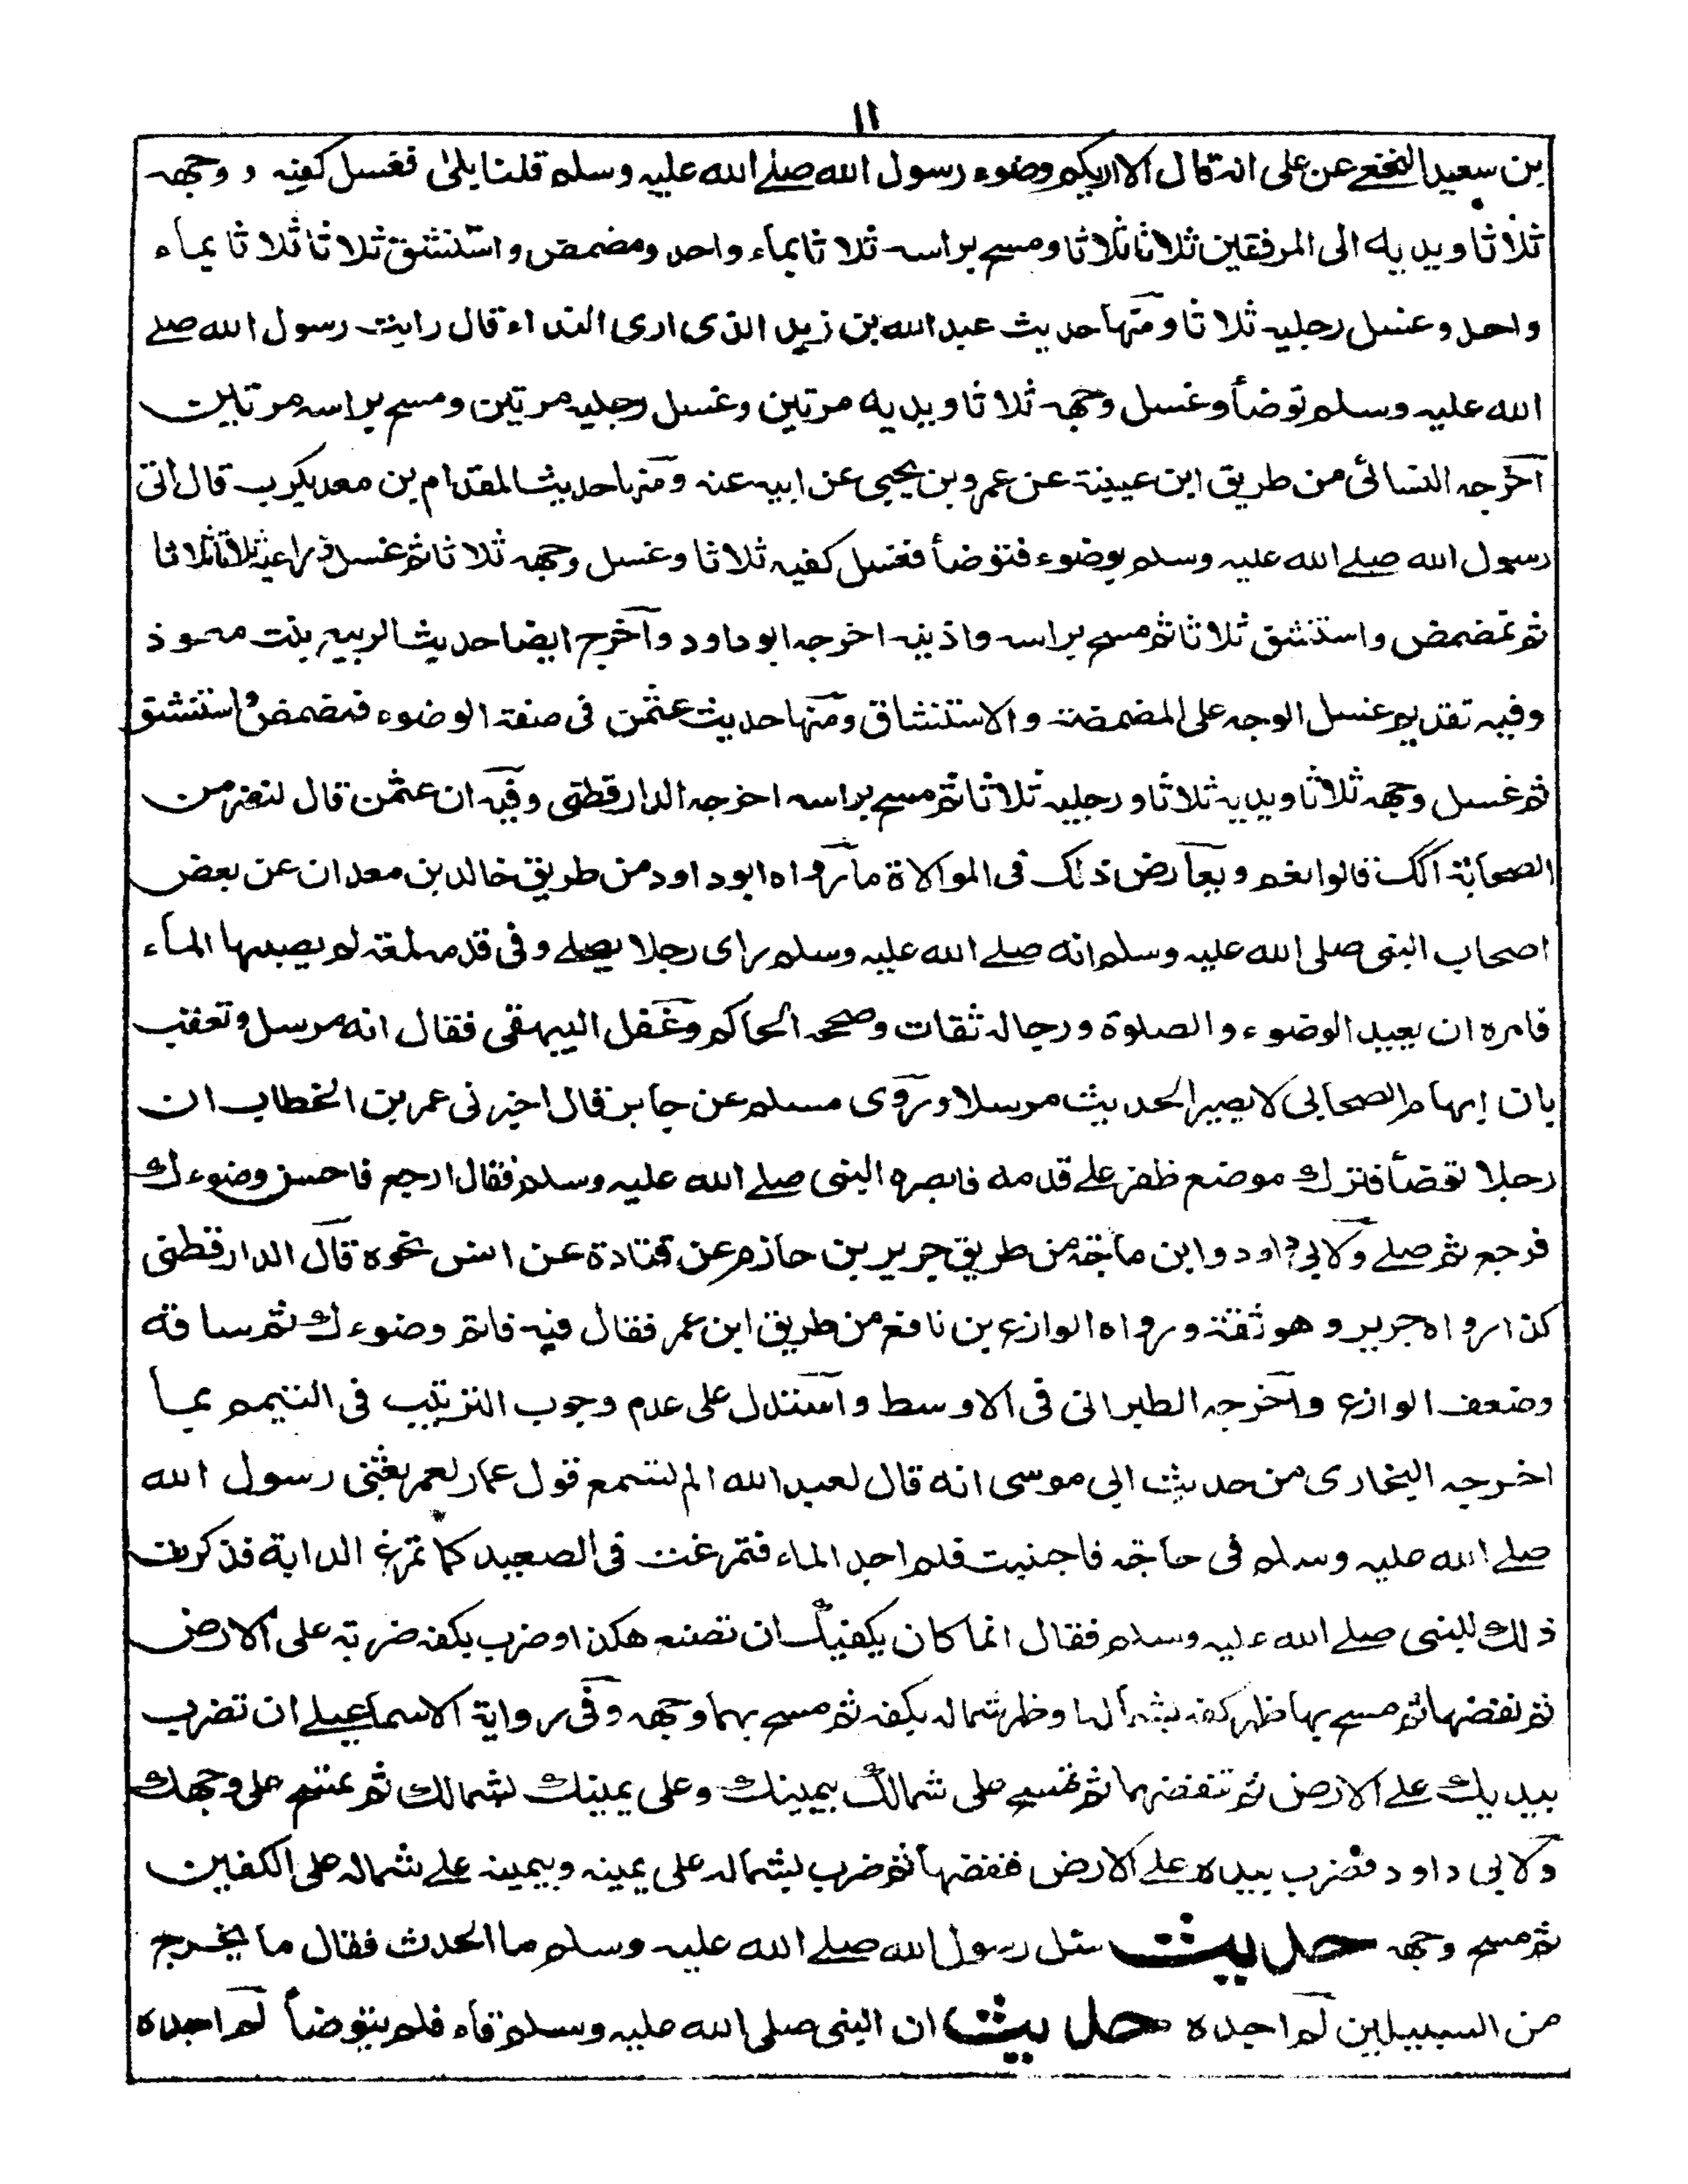 ١١
بن سعيد النخعي عن على انه قال الا اريكم وضوء رسول الله صلے الله عليه وسلم قلنا بلىٰ فغسل كفيه ووجهه
ثلاثا ويديه الى المرفقين ثلاثا ثلاثا ومسح براسه ثلاثا بماء واحد ومضمض واستنشق ثلاثا ثلاثا بماء
واحد وغسل رجليه ثلاثا ومنها حديث عبد الله بن زيد الذى ارى النداء قال رايت رسول الله صلے
الله عليه وسلم توضأ وغسل وجهه ثلاثا ويديه مرتين وغسل رجليه مرتين ومسح براسه مرتين
اخرجه النسائى من طريق ابن عيينة عن عمرو بن يحيى عن ابيه عنه ومنها حديث المقدام بن معديكرب قال اتى
رسول الله صلے الله عليه وسلم بوضوء فتوضأ فغسل كفيه ثلاثا وغسل وجهه ثلاثا ثم غسل ذراعيه ثلاثا ثلاثا
ثم تمضمض واستنشق ثلاثا ثم مسح براسه واذنيه اخرجه ابو داود واخرج ايضا حديث الربيع بنت معوذ
وفيه تقديم غسل الوجه على المضمضة والاستنشاق ومنها حديث عثمن فى صفة الوضوء فمضمض واستنشق
ثم غسل وجهه ثلاثا ويديه ثلاثا ورجليه ثلاثا ثم مسح براسه اخرجه الدارقطنى وفيه ان عثمن قال لنفر من
الصحابة اكذلك قالوا نعم ويعارض ذلك فى الموالاة ما رواه ابو داود من طريق خالد بن معدان عن بعض
اصحاب النبى صلى الله عليه وسلم انه صلے الله عليه وسلم راى رجلا يصلے وفى قدمه لمعة لم يصبها الماء
فامره ان يعيد الوضوء والصلوة ورجاله ثقات وصححه الحاكم وغفل البيهقى فقال انه مرسل وتعقب
بان ابهام الصحابى لا يصير الحديث مرسلا وروى مسلم عن جابر قال اخبرنى عمر بن الخطاب ان
رجلا توضأ فترك موضع ظفر علے قدمه فابصره النبى صلے الله عليه وسلم فقال ارجع فاحسن وضوءك
فرجع ثم صلے ولابى داود وابن ماجة من طريق جرير بن حازم عن قتادة عن انس نحوه قال الدارقطنى
كذا رواه جرير وهو ثقة ورواه الوازع بن نافع من طريق ابن عمر فقال فيه فاتم وضوءك ثم ساقه
وضعف الوازع واخرجه الطبرانى فى الاوسط واستدل على عدم وجوب الترتيب فى التيمم بما
اخرجه البخارى من حديث ابى موسى انه قال لعبد الله الم تسمع قول عمار لعمر بعثنى رسول الله
صلے الله عليه وسلم فى حاجة فاجنبت فلم اجد الماء فتمرغت فى الصعيد كما تمرغ الدابة فذكرت
ذلك للنبى صلے الله عليه وسلم فقال انما كان يكفيك ان تصنع هكذا وضرب بكفه ضربة على الارض
ثم نفضها ثم مسح بها ظهر كفه بشماله وظهر شماله بكفه ثم مسح بهما وجهه وفى رواية الاسماعيلے ان تضرب
بيديك علے الارض ثم تنفضهما ثم تمسح على شمالك بيمينك وعلى يمينك بشمالك ثم تمسح على وجهك
ولابى داود فضرب بيده علے الارض فنفضها ثم ضرب بشماله على يمينه وبيمينه علے شماله على الكفين
ثم مسح وجهه حديث سئل رسول الله صلے الله عليه وسلم ما الحدث فقال ما يخرج
من السبيلين لم اجده حديث ان النبى صلى الله عليه وسلم قاء فلم يتوضأ لم اجده